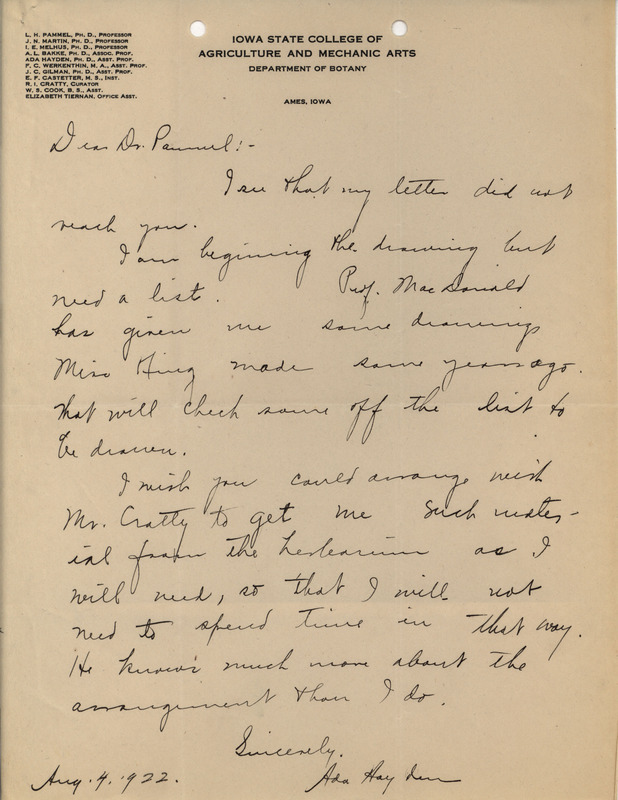 L. H. PAMMEL, PH. D., PROFESSOR
J. N. MARTIN, PH. D., PROFESSOR
I. E. MELHUS, PH. D., PROFESSOR
A. L. BAKKE, PH. D., ASSOC. PROF.
ADA HAYDEN, PH. D., ASST. PROF.
F. C. WERKENTHIN, M. A., ASST. PROF.
J. C. GILMAN, PH. D., ASST. PROF.
E. F. CASTETTER, M. S., INST.
R. I. CRATTY, CURATOR
W. S. COOK, B. S., ASST.
ELIZABETH TIERNAN, OFFICE ASST.
IOWA STATE COLLEGE OF
AGRICULTURE AND MECHANIC ARTS
DEPARTMENT OF BOTANY
AMES, IOWA
Dear Dr. Pammel:-
I see that my letter did not
reach you.
I am beginning the drawing but
need a list. Prof. MacDonald
has given me some drawings
Miss King made some years ago.
that will check some off the list to
be drawn.
I wish you could arrange with
Mr. Cratty to get me such mater-
ial from the herbarium as I
will need, so that I will not
need to spend time in that way.
He knows much more about the
arrangement than I do.
Sincerely,
Aug. 4. 1922. Ada Hayden